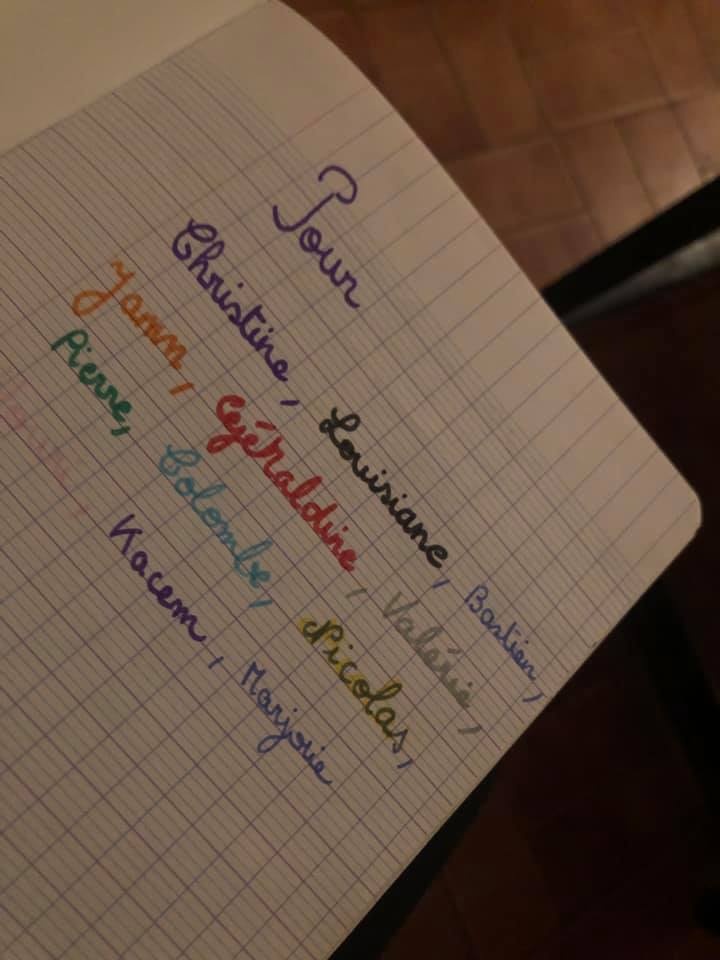 Pour
Christine, Louisiane, Bastien,
Yann, Géraldine, Valérie,
Pierre, Colombe, Nicolas,
Kacem, Marjorie